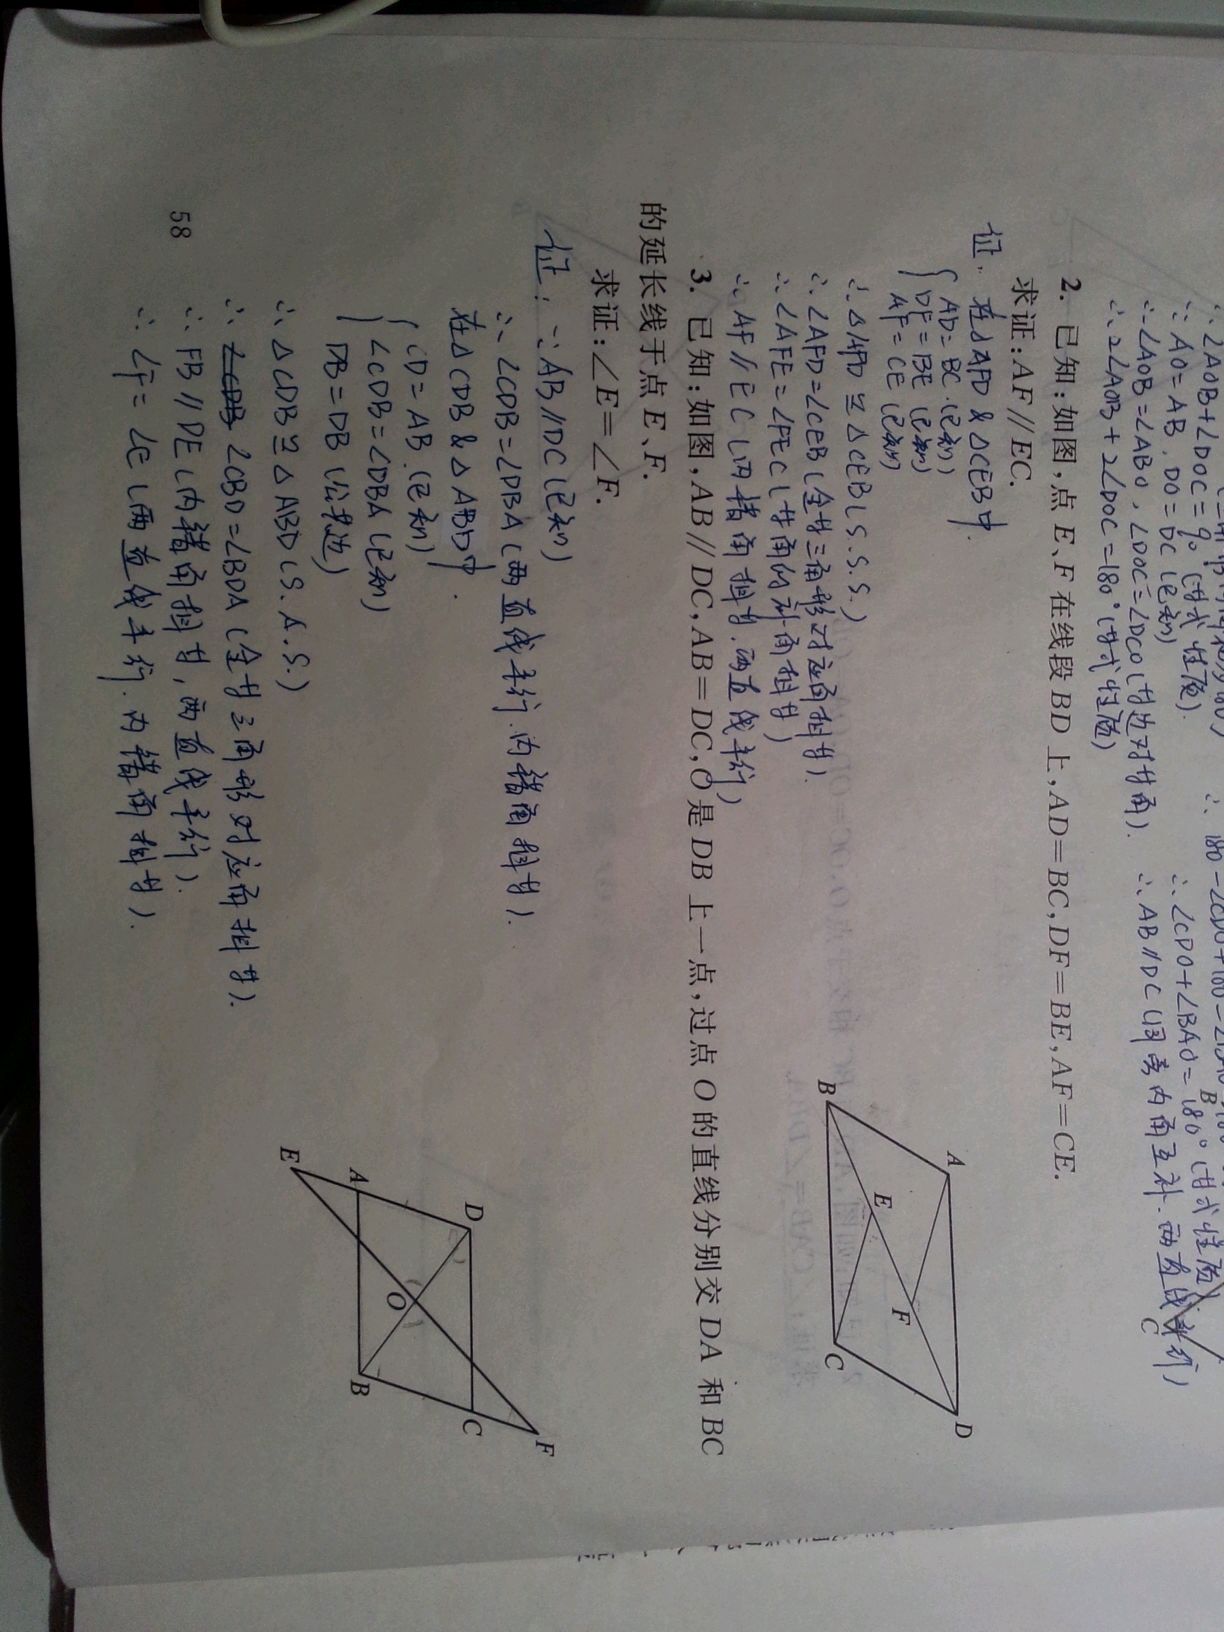 ∴ ∠AOB+∠DOC=90°(等式性质).
∴ AO=AB, DO=DC(已知)
∴ ∠AOB=∠ABO, ∠DOC=∠DCO(等边对等角).
∴ 2∠AOB+2∠DOC=180°(等式性质)
∴ ∠CDO+∠BAO=180°(等式性质)
∴ AB∥DC(同旁内角互补.两直线平行)
B
C
2. 已知:如图,点E、F在线段BD上,AD=BC,DF=BE,AF=CE.
求证:AF∥EC.
证. 在△AFD & △CEB中.
AD=BC.(已知)
DF=BE (已知)
AF=CE (已知)
∴ △AFD≌△CEB(S.S.S.)
∴ ∠AFD=∠CEB(全等三角形对应角相等).
∴ ∠AFE=∠FEC(等角的补角相等)
∴ AF∥EC(内错角相等.两直线平行)
A
B
E
F
C
D
3. 已知:如图,AB∥DC,AB=DC,O是DB上一点,过点O的直线分别交DA和BC
的延长线于点E、F.
求证:∠E=∠F.
证: ∵ AB∥DC(已知)
∴ ∠CDB=∠DBA(两直线平行.内错角相等).
在△CDB & △ABD中.
CD=AB.(已知)
∠CDB=∠DBA(已知)
DB=DB(公共边)
∴ △CDB≌△ABD(S.A.S.)
∴ ∠CDB ∠CBD=∠BDA(全等三角形对应角相等).
∴ FB∥DE(内错角相等,两直线平行).
∴ ∠F=∠E(两直线平行.内错角相等).
D
C
F
O
E
A
B
58